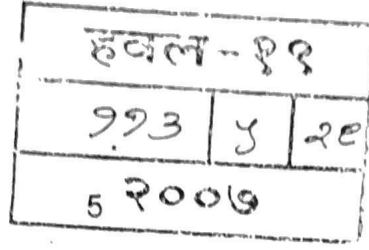 हवल-११
११३ ५ २९
5 २००७